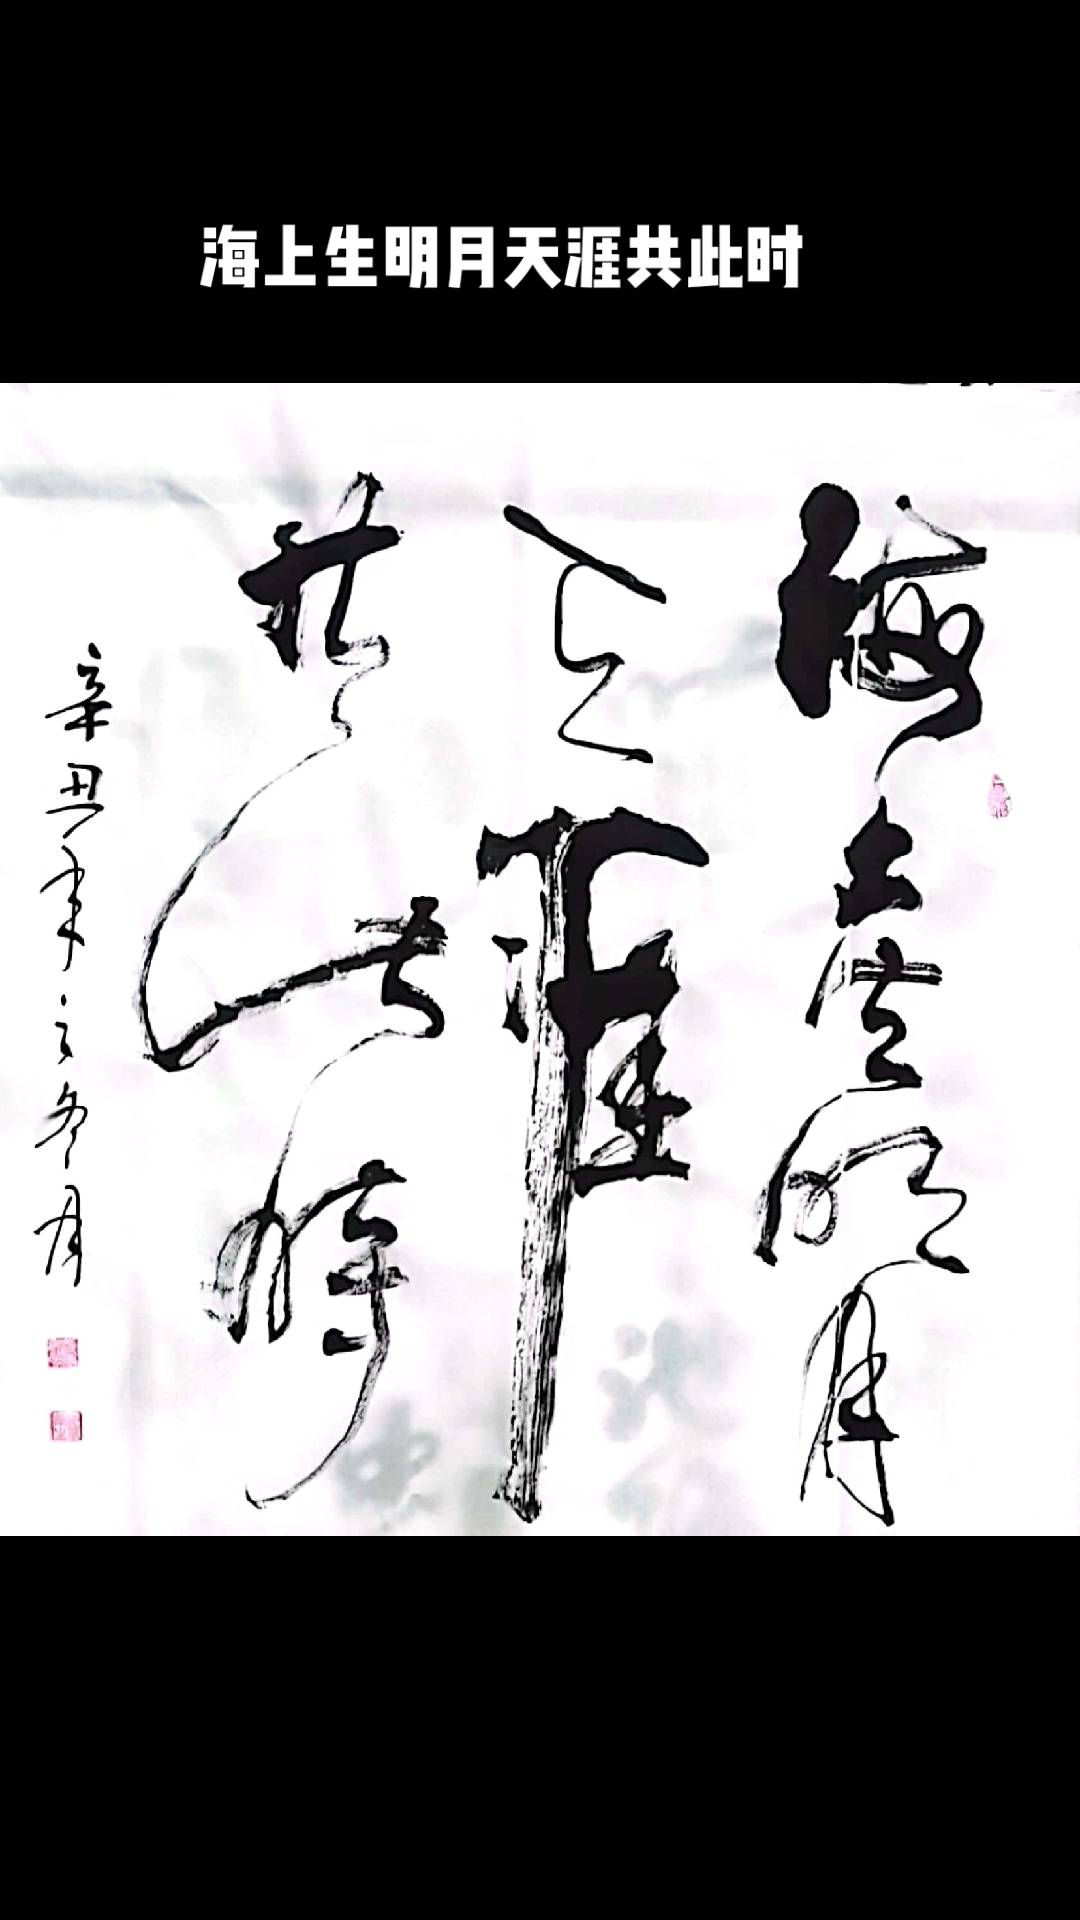 海上生明月天涯共此时
海上生明月
天涯
共此時
辛丑年之冬月